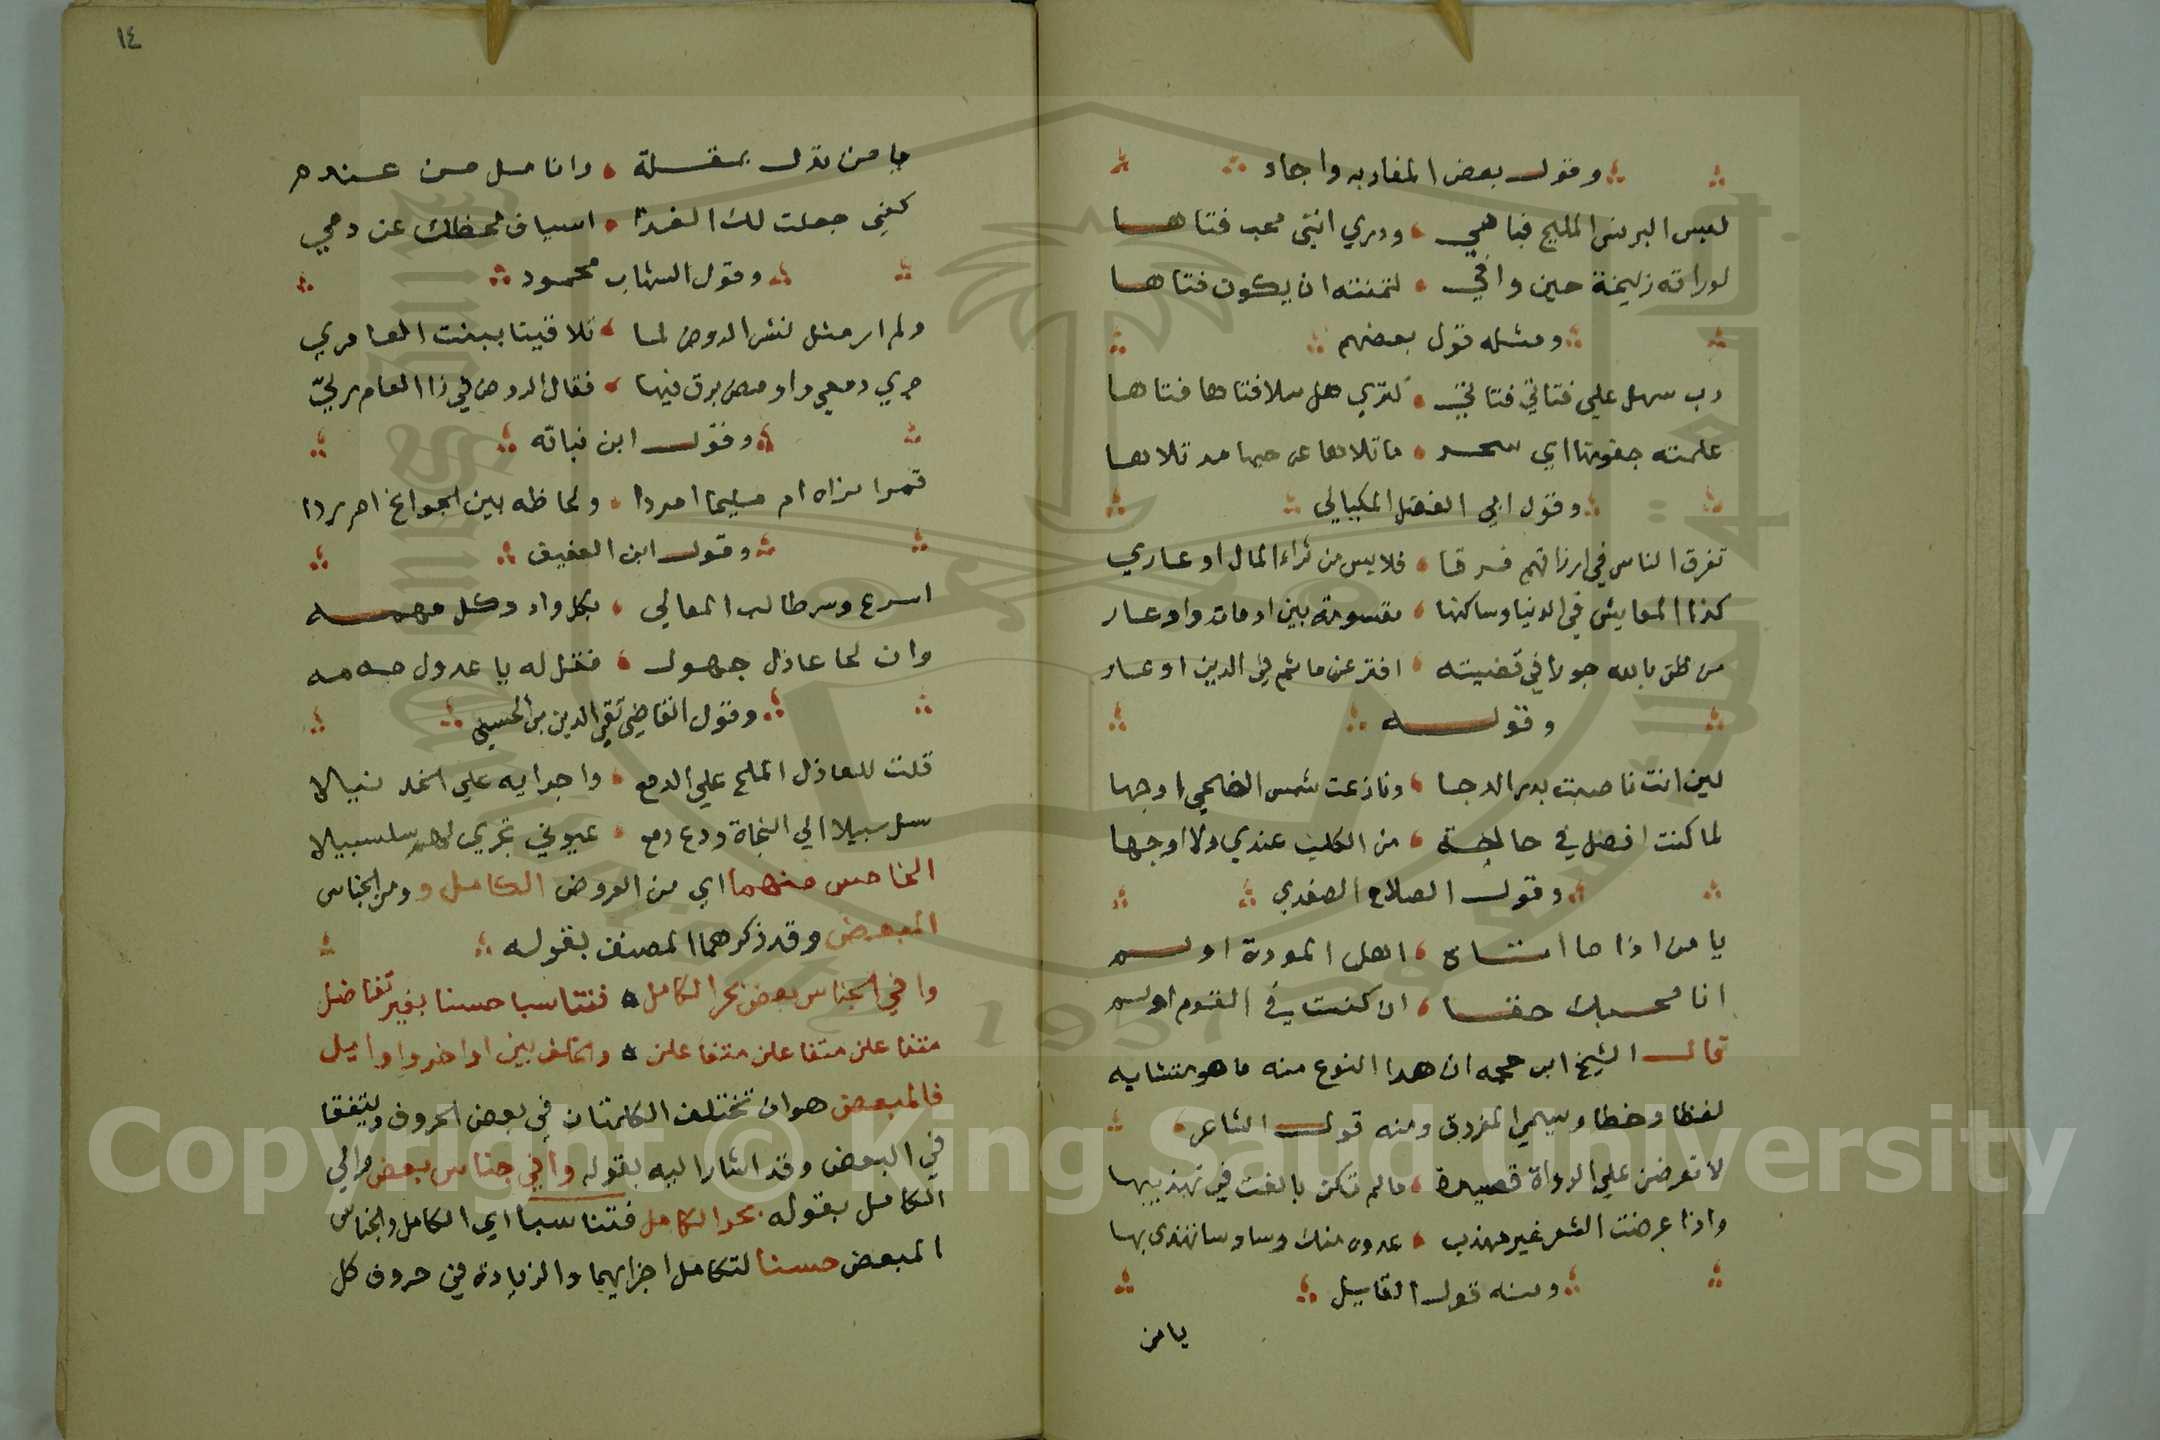 وقول بعض المغاربه واجاد
لبس البرنس المليح فباهي ودري انني محب فتاها
لوراته زليخة حين وافي لتمنته ان يكون فتاها
ومثله قول بعضهم
رب سهل علي فتاتي فتاتي لتري هل سلا فتاها فتاها
علمته جفونها اي سحر ما تلاها عن حبها مد تلاها
وقول ابي الفضل الميكالي
تفرق الناس في ارزاقهم فرقا فلابس من ثراء المال او عاري
كذا المعايش في الدنيا وساكنها مقسومة بين اوعار
من ظن بالله جورا في قضيته افتر عن ماثم في الدين او عار
وقوله
لين انت ناصبت بدر الدجا ونازعت شمس الضحي اوجها
لما كنت افضل في حالة من الكلب عندي ولا اوجها
وقول الصلاح الصفدي
يا من اذا ما اتاه اهل المودة اولم
انا محبك حقا ان كنت في القوم اولم
قال الشيخ ابن حجه ان هدا النوع منه ما هو متشابه
لفظا وخطا ويسمي المفروق ومنه قول الشاعر
لا تعرضن علي الرواة قصيدة مالم تكن بالغت في تهذيبها
واذا عرضت الشعر غير مهذب عدوه منك وساوسا تهذي بها
ومنه قول القايل
يا من
١٤
يا من تدل بمقلة وانامل من عندم
كفي جعلت لك الفدا اسياف لحظك عن دمي
وقول الشهاب محمود
ولم ار مثل نشر الروض لما تلاقينا ببنت العامري
جري دمعي واومض برق فيها فقال الروض في ذا العام ريي
وقول ابن نباته
قمرا نراه ام مليحا امردا ولحاظه بين الجوانح ام ردا
وقول ابن العفيف
اسرع وسر طالب المعالي بكل واد وكل مهمه
وان لحا عاذل جهول فقل له يا عدول مه مه
وقول القاضي تقي الدين بن الحسين
قلت للعاذل الملح علي الدمع واجرايه علي الخد نيالا
سل سبيلا الي النجاة ودع دمع عيوني تجري لهم سلسبيلا
الخامس منهما اي من العروض الكامل و ومن الجناس
المبعض وقد ذكرهما المصنف بقوله
وافي الجناس بعض بحر الكامل فتناسبا حسنا بغير تفاضل
متفاعلن متفاعلن متفاعلن واتلف بين اواخر واوايل
فالمبعض هو ان تختلف الكلمتان في بعض الحروف ويتفقا
في البعض وقد اشار اليه بقوله وافي جناس بعض والي
الكامل بقوله بحر الكامل فتناسبا اي الكامل والجناس
المبعض حسنا لتكامل اجزايهما والزيادة في حروف كل
Copyright © King Saud University
1957